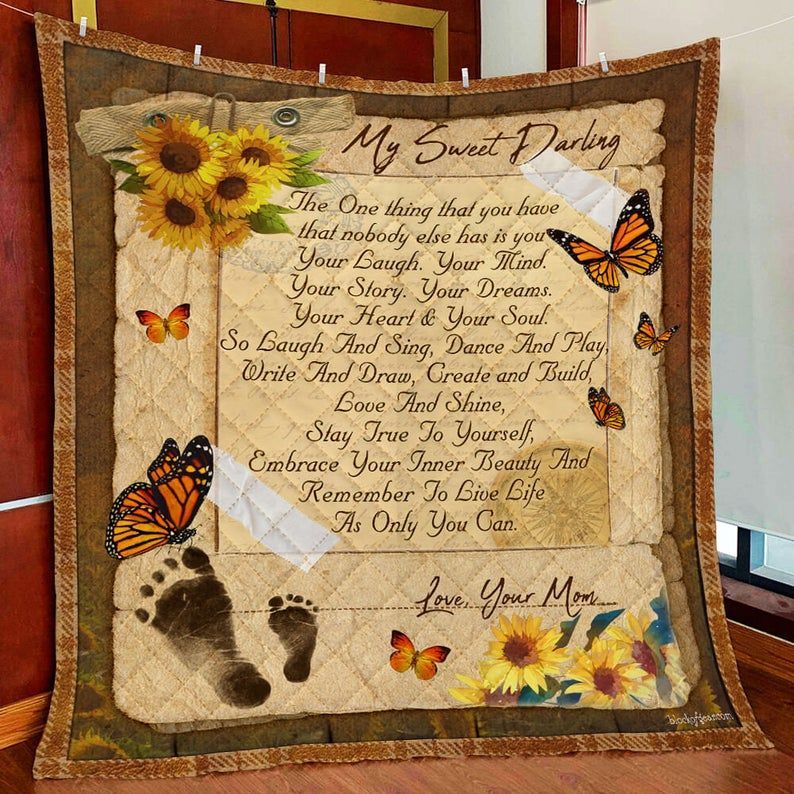 My Sweet Darling
The One thing that you have
that nobody else has is you
Your Laugh. Your Mind.
Your Story. Your Dreams.
Your Heart & Your Soul.
So Laugh And Sing, Dance And Play,
Write And Draw, Create and Build,
Love And Shine,
Stay True To Yourself,
Embrace Your Inner Beauty And
Remember To Live Life
As Only You Can.
Love, Your Mom